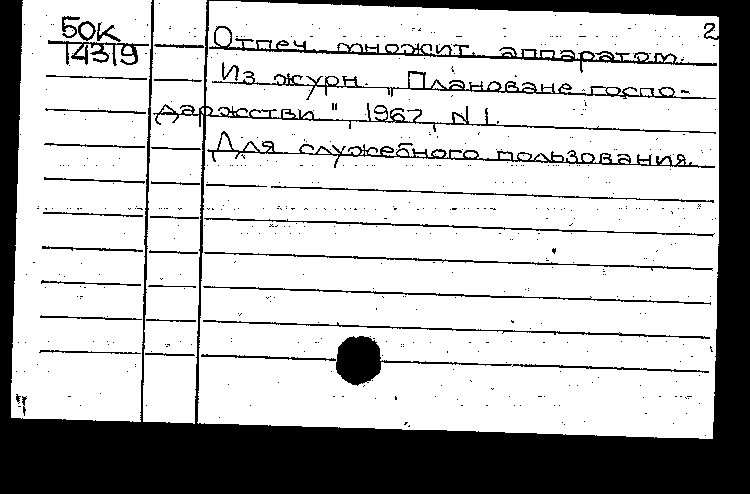 2
БОК
14319
Отпеч. множит. аппаратом.
Из журн. „Плановане госпо-
даржстви", 1967, N 1.
Для служебного пользования.